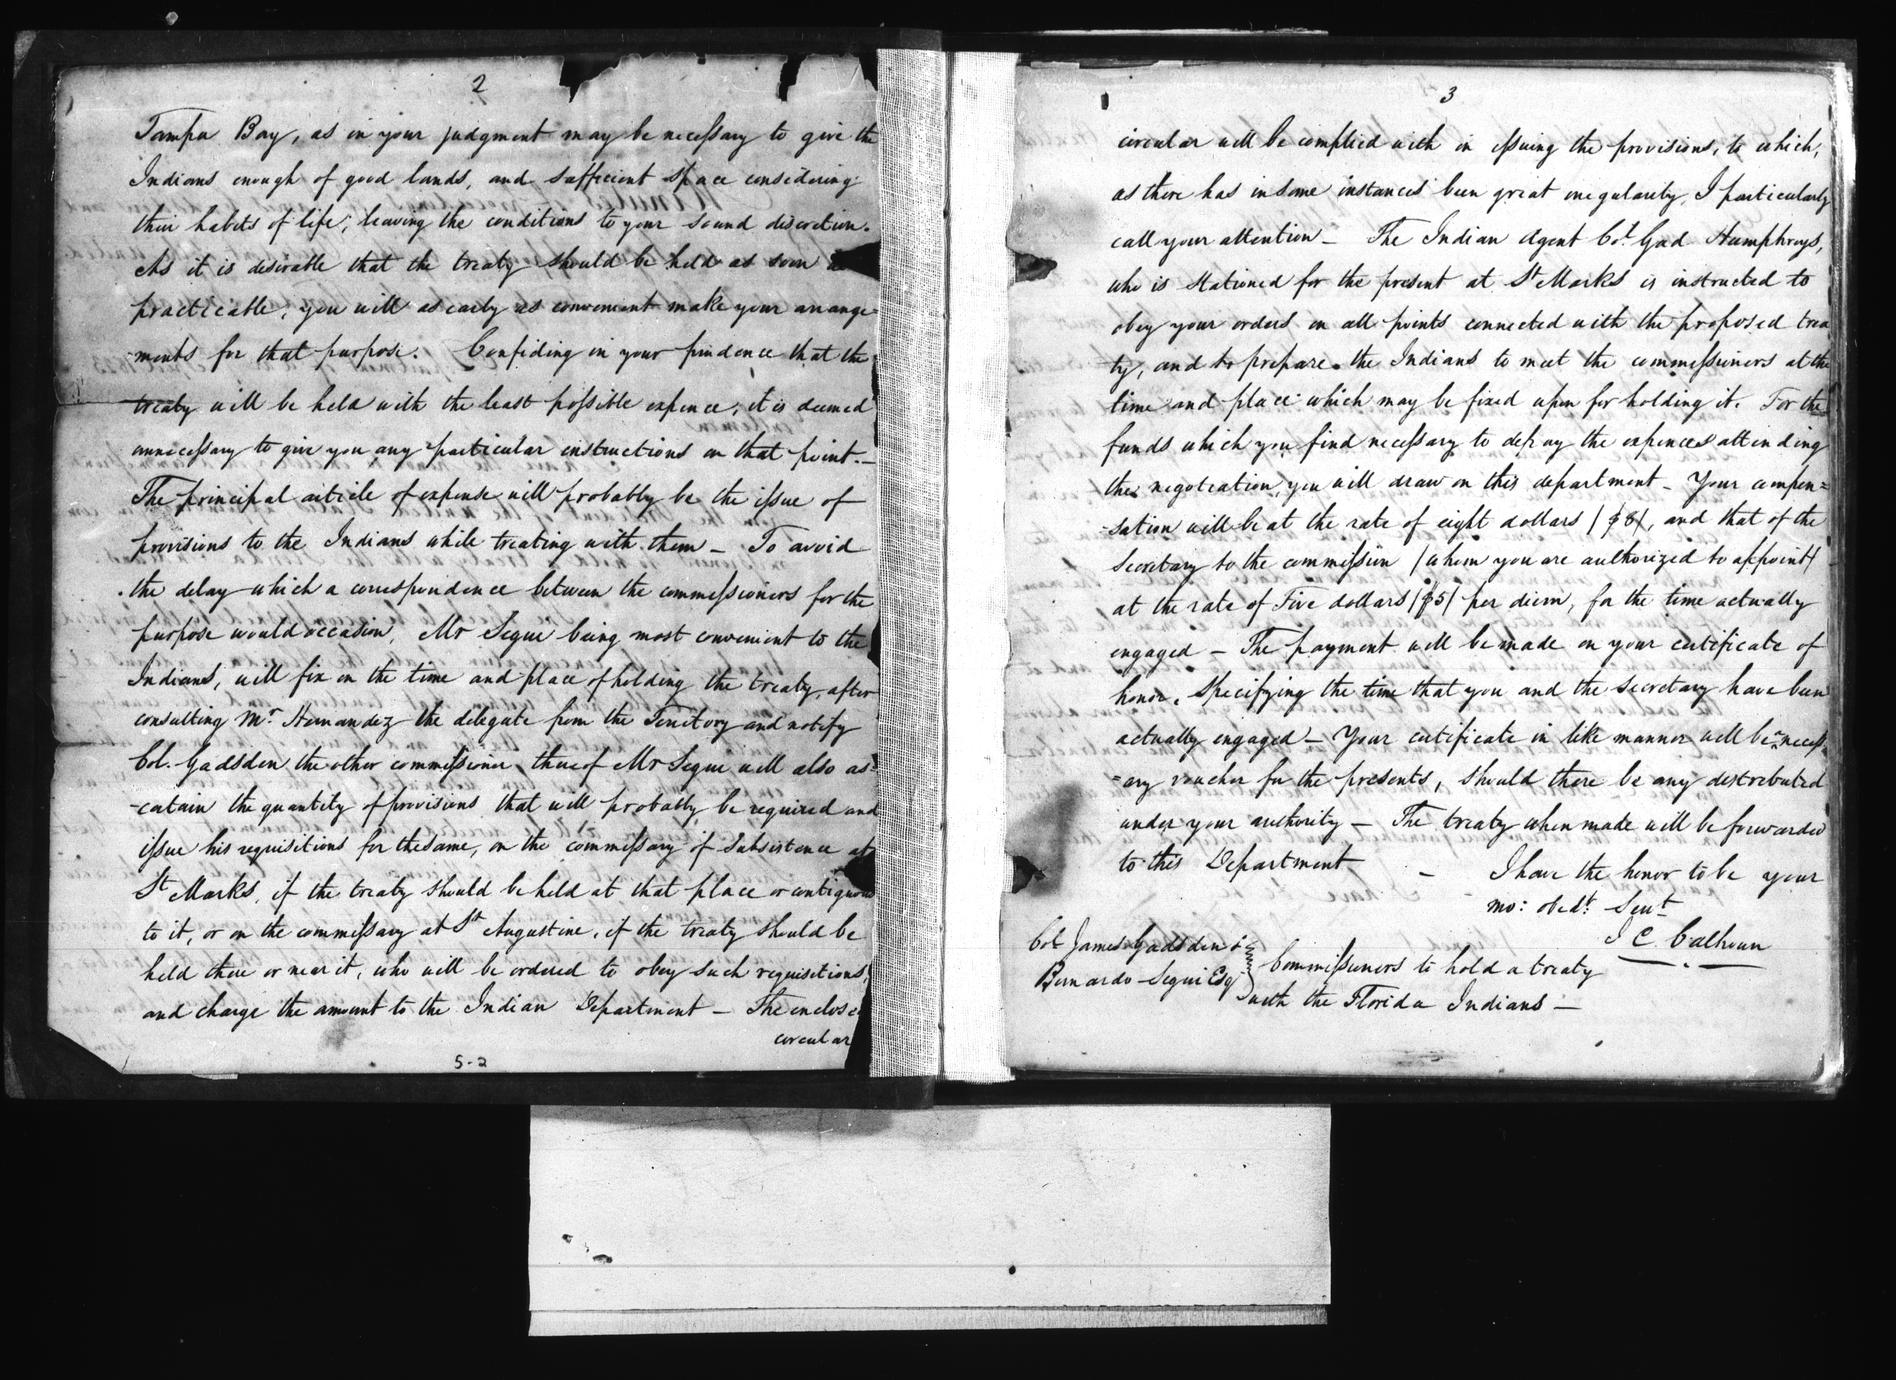 2
Tampa Bay, as in your judgment may be necessary to give the
Indians enough of good lands, and sufficient space considering
their habits of life; leaving the conditions to your sound discretion.
As it is desirable that the treaty should be held as soon
practicable, you will as early as convenient make your arrange
ments for that purpose. Confiding in your prudence that the
treaty will be held with the least possible expence, it is deemed
unnecessary to give you any particular instructions on that point.—
The principal article of expense will probably be the issue of
provisions to the Indians while treating with them — To avoid
the delay which a correspondence between the commissioners for the
purpose would occasion, Mr Segue being most convenient to the
Indians, will fix on the time and place of holding the treaty, after
consulting Mr Hernandez the delegate from the Territory and notify
Col. Gadsden the other commissioner thereof Mr Segue will also as-
-certain the quantity of provisions that will probably be required and
issue his requisitions for the same, on the commissary of Subsistence at
St Marks, if the treaty should be held at that place or contiguous
to it, or on the commissary at St Augustine, if the treaty should be
held there or near it, who will be ordered to obey such requisitions,
and charge the amount to the Indian Department — The enclosed
circular
5-2
3
circular will be complied with in issuing the provisions, to which,
as there has in some instances been great irregularity, I particularly
call your attention — The Indian Agent Col. Gad Humphreys,
who is stationed for the present at St Marks is instructed to
obey your orders on all points connected with the proposed trea
ty, and to prepare the Indians to meet the commissioners at the
time and place which may be fixed upon for holding it. For the
funds which you find necessary to defray the expences attending
the negotiation, you will draw on this department — Your compen=
-sation will be at the rate of eight dollars ($8), and that of the
Secretary to the commission (whom you are authorized to appoint)
at the rate of Five dollars ($5) per diem, for the time actually
engaged — The payment will be made on your certificate of
honor, specifying the time that you and the secretary have been
actually engaged — Your certificate in like manner will be necess-
=ary voucher for the presents, should there be any distributed
under your authority — The treaty when made will be forwarded
to this Department — I have the honor to be your
mo: obedt. Servt
J C. Calhoun
Col James Gadsden &
Bernardo Segui Esq
Commissioners to hold a treaty
with the Florida Indians —